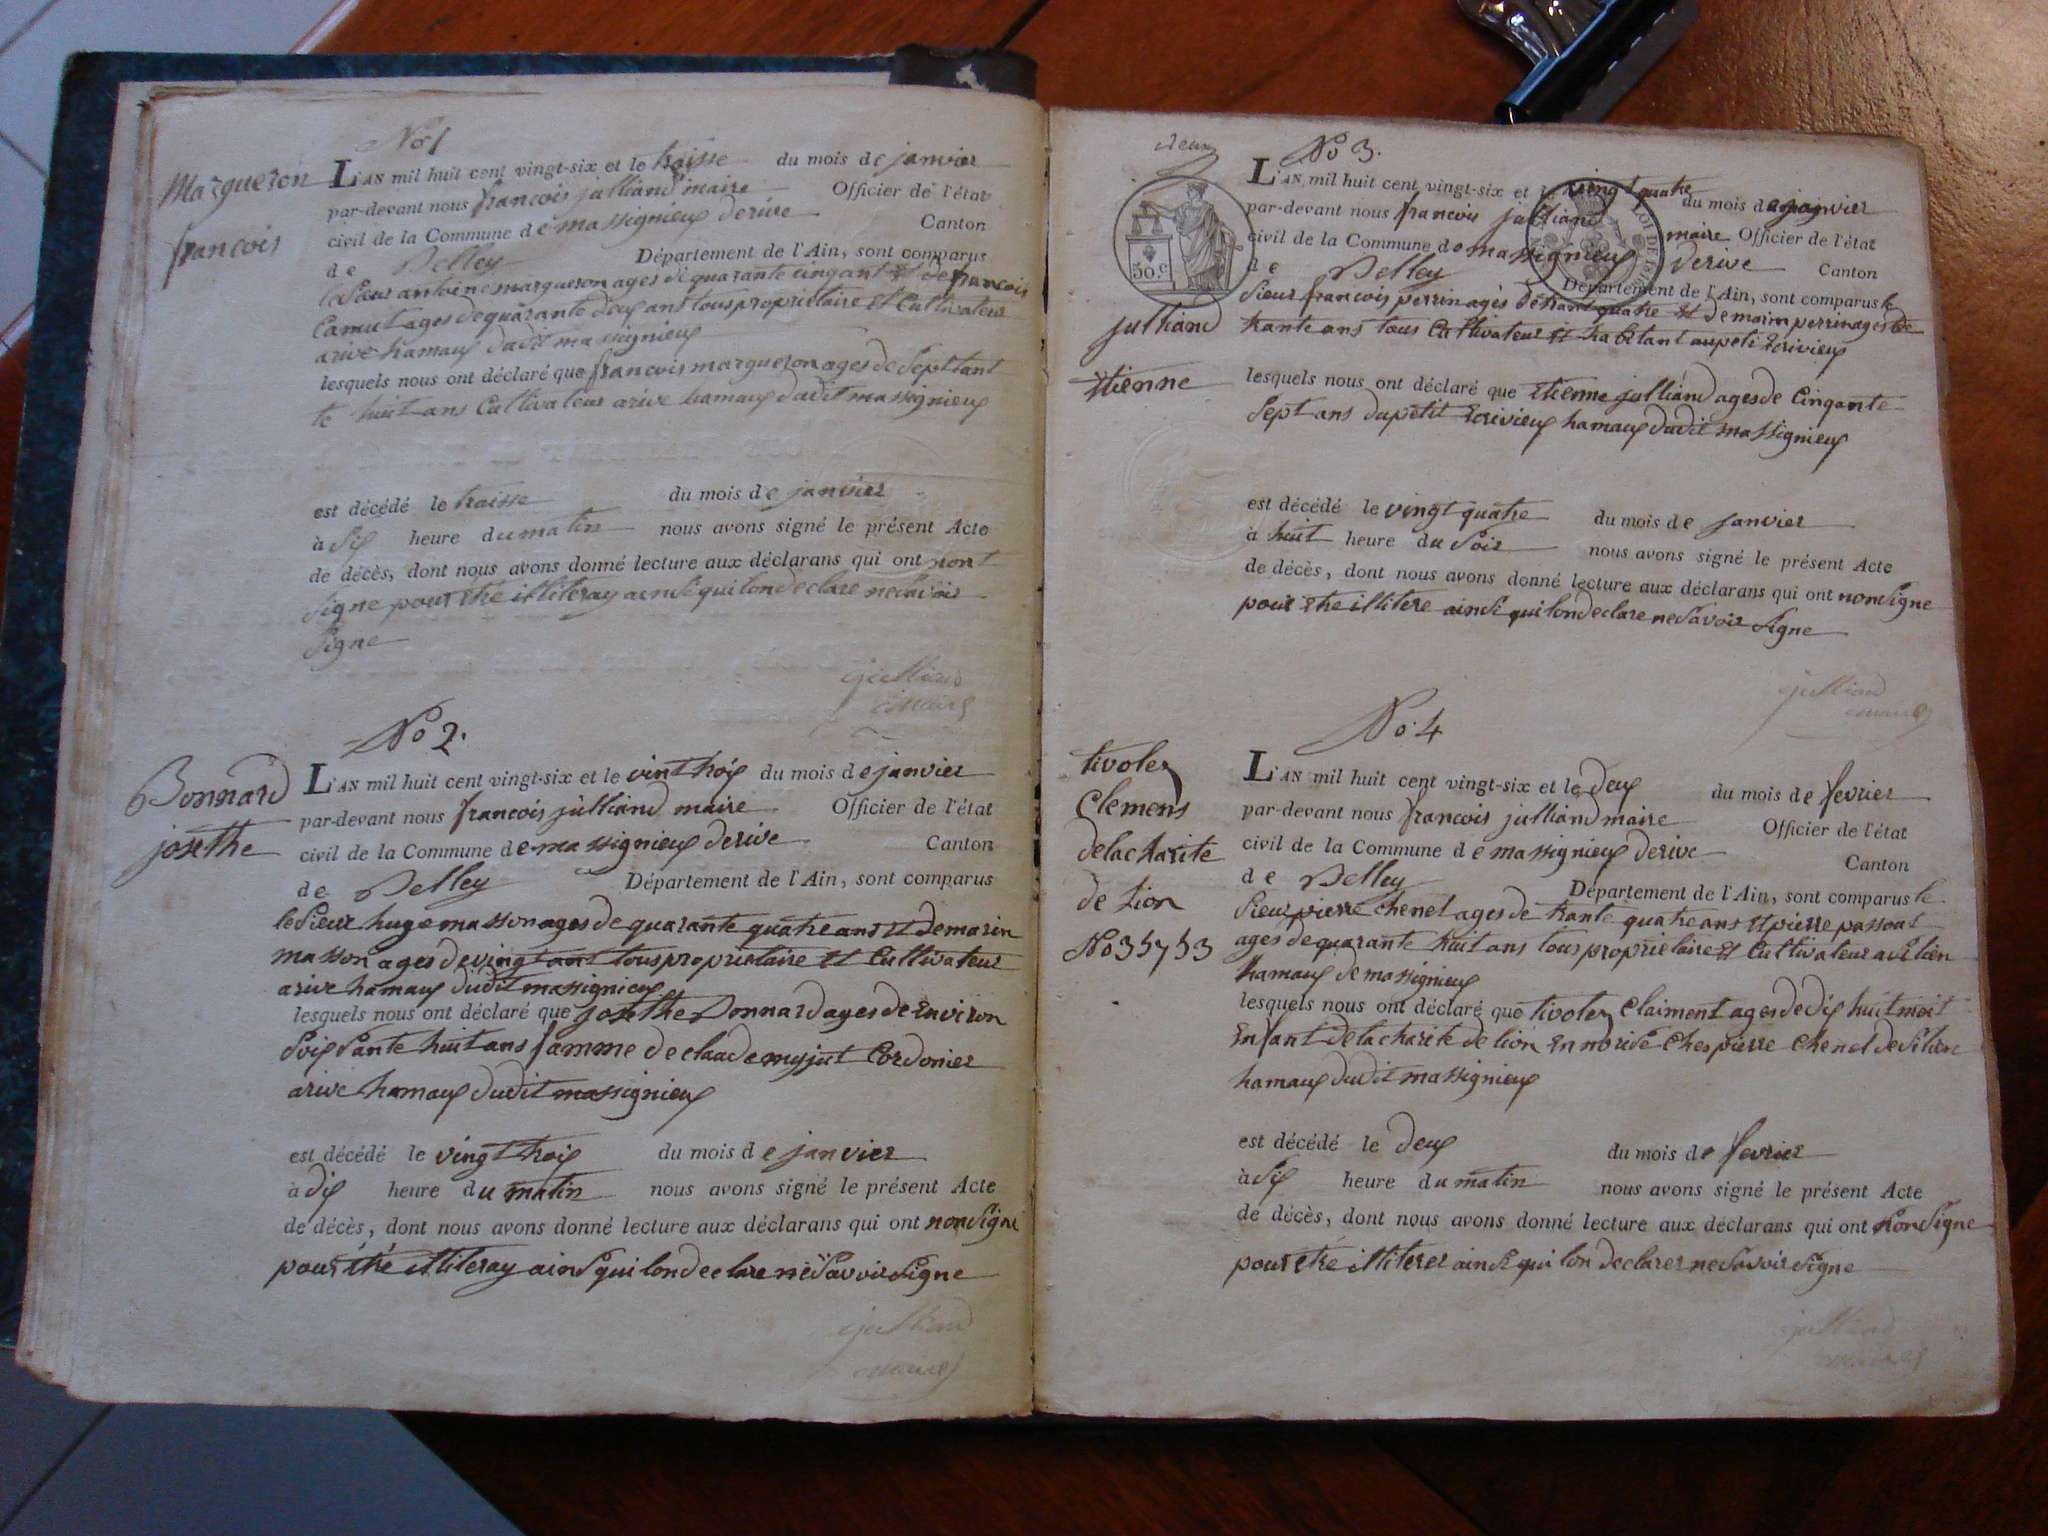 No 1
Margueron
françois
L'AN mil huit cent vingt-six et le traisse du mois de janvier
par-devant nous françois julliand maire Officier de l'état
civil de la Commune de massignieux derive Canton
de Belley Département de l'Ain, sont comparus
le Sieur antoine marguerons ages de quarante cinq ant et de françois
Camut ages de quarante deux ans tous propriétaire et Cultivateur
arive hamaux dudit massignieux
lesquels nous ont déclaré que françois margueron ages de Septtant
te huit ans Cultivateur arive hamaux dudit massignieux
est décédé le traisse du mois de janvier
à Six heure du matin nous avons signé le présent Acte
de décès, dont nous avons donné lecture aux déclarans qui ont nont
Signe pour etre illiteray ainsi qui lon declare ne Savoir
Signe
julliand
maire
No 2.
Bonnard
josethe
L'AN mil huit cent vingt-six et le vint troix du mois de janvier
par-devant nous françois julliand maire Officier de l'état
civil de la Commune de massignieux derive Canton
de Belley Département de l'Ain, sont comparus
le Sieur huge masson ages de quarante quatre ans et de marin
masson ages de vingt ant tous proprietaire et Cultivateur
arive hamaux dudit massignieux
lesquels nous ont déclaré que josethe Bonnard ages de Environ
Soix Sante huit ans famme de claude myjut Cordonier
arive hamaux dudit massignieux
est décédé le vingt troix du mois de janvier
à dix heure du matin nous avons signé le présent Acte
de décès, dont nous avons donné lecture aux déclarans qui ont non Signe
pour étré illiteray ainS qui lon declare ne Savoir Signe
julliand
maire
deux
No 3.
30.c
LOI DE
julliand
Etienne
L'AN mil huit cent vingt-six et le vingt quatre du mois de janvier
par-devant nous francois julliand maire Officier de l'état
civil de la Commune de massignieux derive Canton
de Belley Département de l'Ain, sont comparus le
Sieur françois perrin agès de trant quatre et de marin perrin ages de
trante ans tous Cultivateur et habitant aupeti Ecrivieux
lesquels nous ont déclaré que Etienne julliand ages de Cinqante
Sept ans du petit Ecrivieux hamaux dudit massignieux
est décédé le vingt quatre du mois de janvier
à huit heure du Soir nous avons signé le présent Acte
de décès, dont nous avons donné lecture aux déclarans qui ont non Signe
pour etre illitere ainsi qui lon declare ne Savoir Signe
julliand
maire
No 4
tivoler
Clemens
delacharite
de Lion
No 35753
L'AN mil huit cent vingt-six et le deux du mois de fevrier
par-devant nous francois julliand maire Officier de l'état
civil de la Commune de massignieux derive Canton
de Belley Département de l'Ain, sont comparus le
Sieur pierre chenel ages de trante quatre ans et pierre passout
ages de quarante huit ans tous proprietaire et Cultivateur a Silien
hamaux de massignieux
lesquels nous ont déclaré que tivoler Claiment ages de dix huit moit
Enfant de la charite de lion En norise Ches pierre Chenel de Silien
hamaux dudit massignieux
est décédé le deux du mois de fevrier
à Six heure du matin nous avons signé le présent Acte
de décès, dont nous avons donné lecture aux déclarans qui ont non Signe
pour etre illiterer ainsi qui lon declarer ne Savoir Signe
julliand
maire